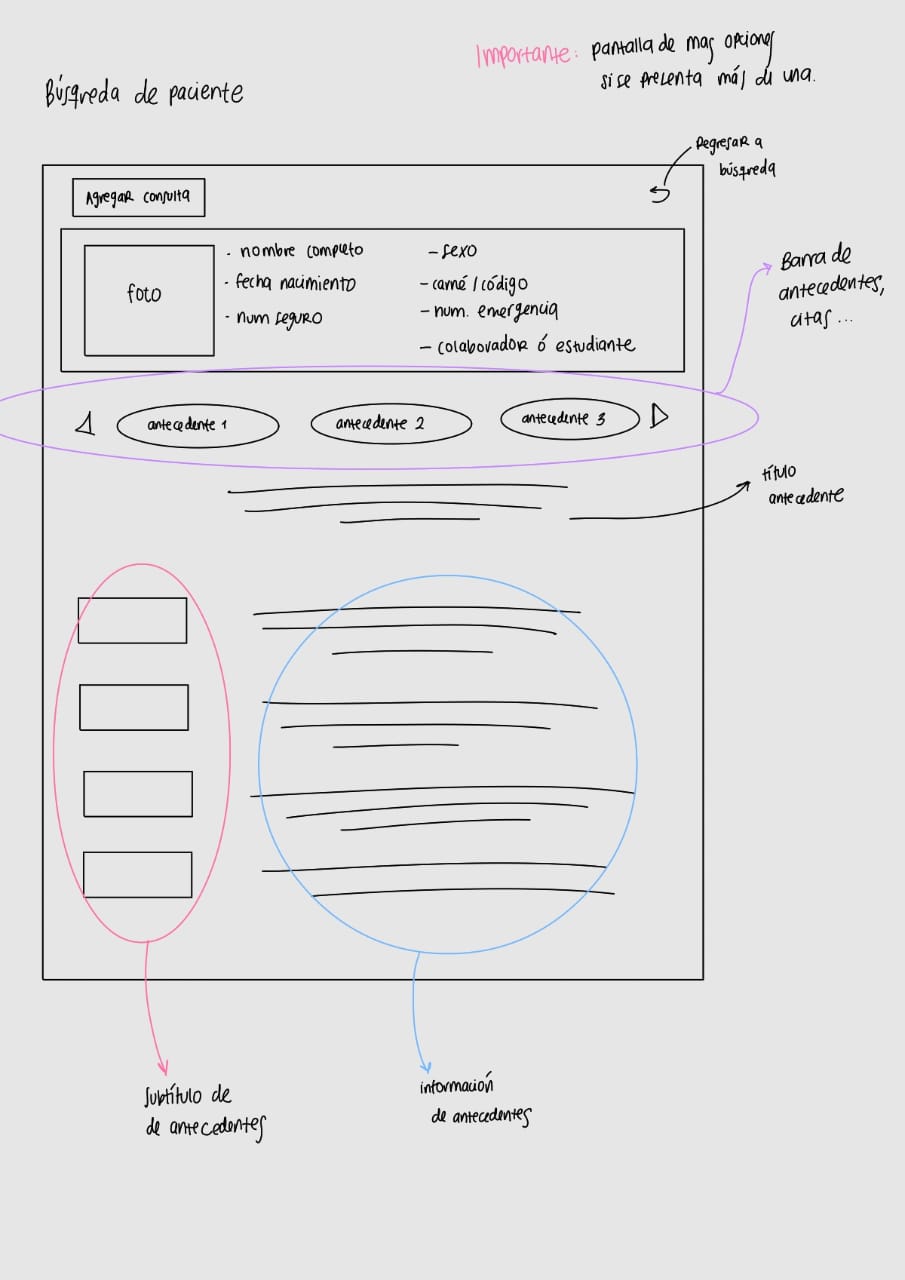 Importante: pantalla de mas opciones
si se presenta más de una.
Búsqueda de paciente
Regresar a
búsqueda
Agregar consulta
foto
- nombre completo
- fecha nacimiento
- num seguro
- sexo
- carné / código
- num. emergencia
- colaborador ó estudiante
Barra de
antecedentes,
citas ...
antecedente 1
antecedente 2
antecedente 3
título
antecedente
subtítulo de
de antecedentes
información
de antecedentes